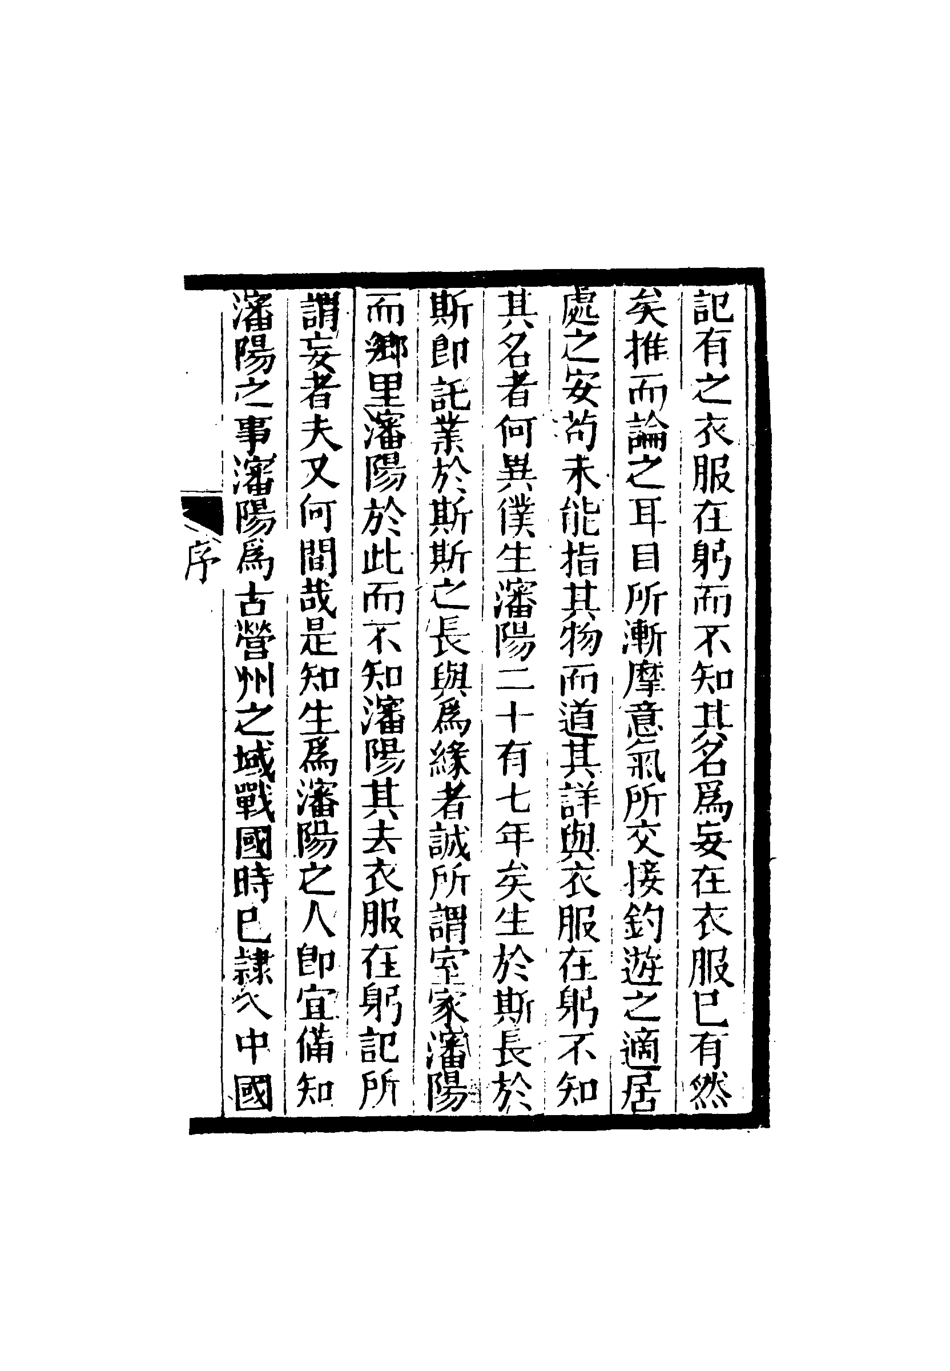 記有之衣服在躬而不知其名爲妄在衣服已有然
矣推而論之耳目所漸摩意氣所交接釣遊之適居
處之安苟未能指其物而道其詳與衣服在躬不知
其名者何異僕生瀋陽二十有七年矣生於斯長於
斯即託業於斯斯之長與爲緣者誠所謂室家瀋陽
而鄉里瀋陽於此而不知瀋陽其去衣服在躬記所
謂妄者夫又何間哉是知生爲瀋陽之人即宜備知
瀋陽之事瀋陽爲古營州之域戰國時已隷入中國
序